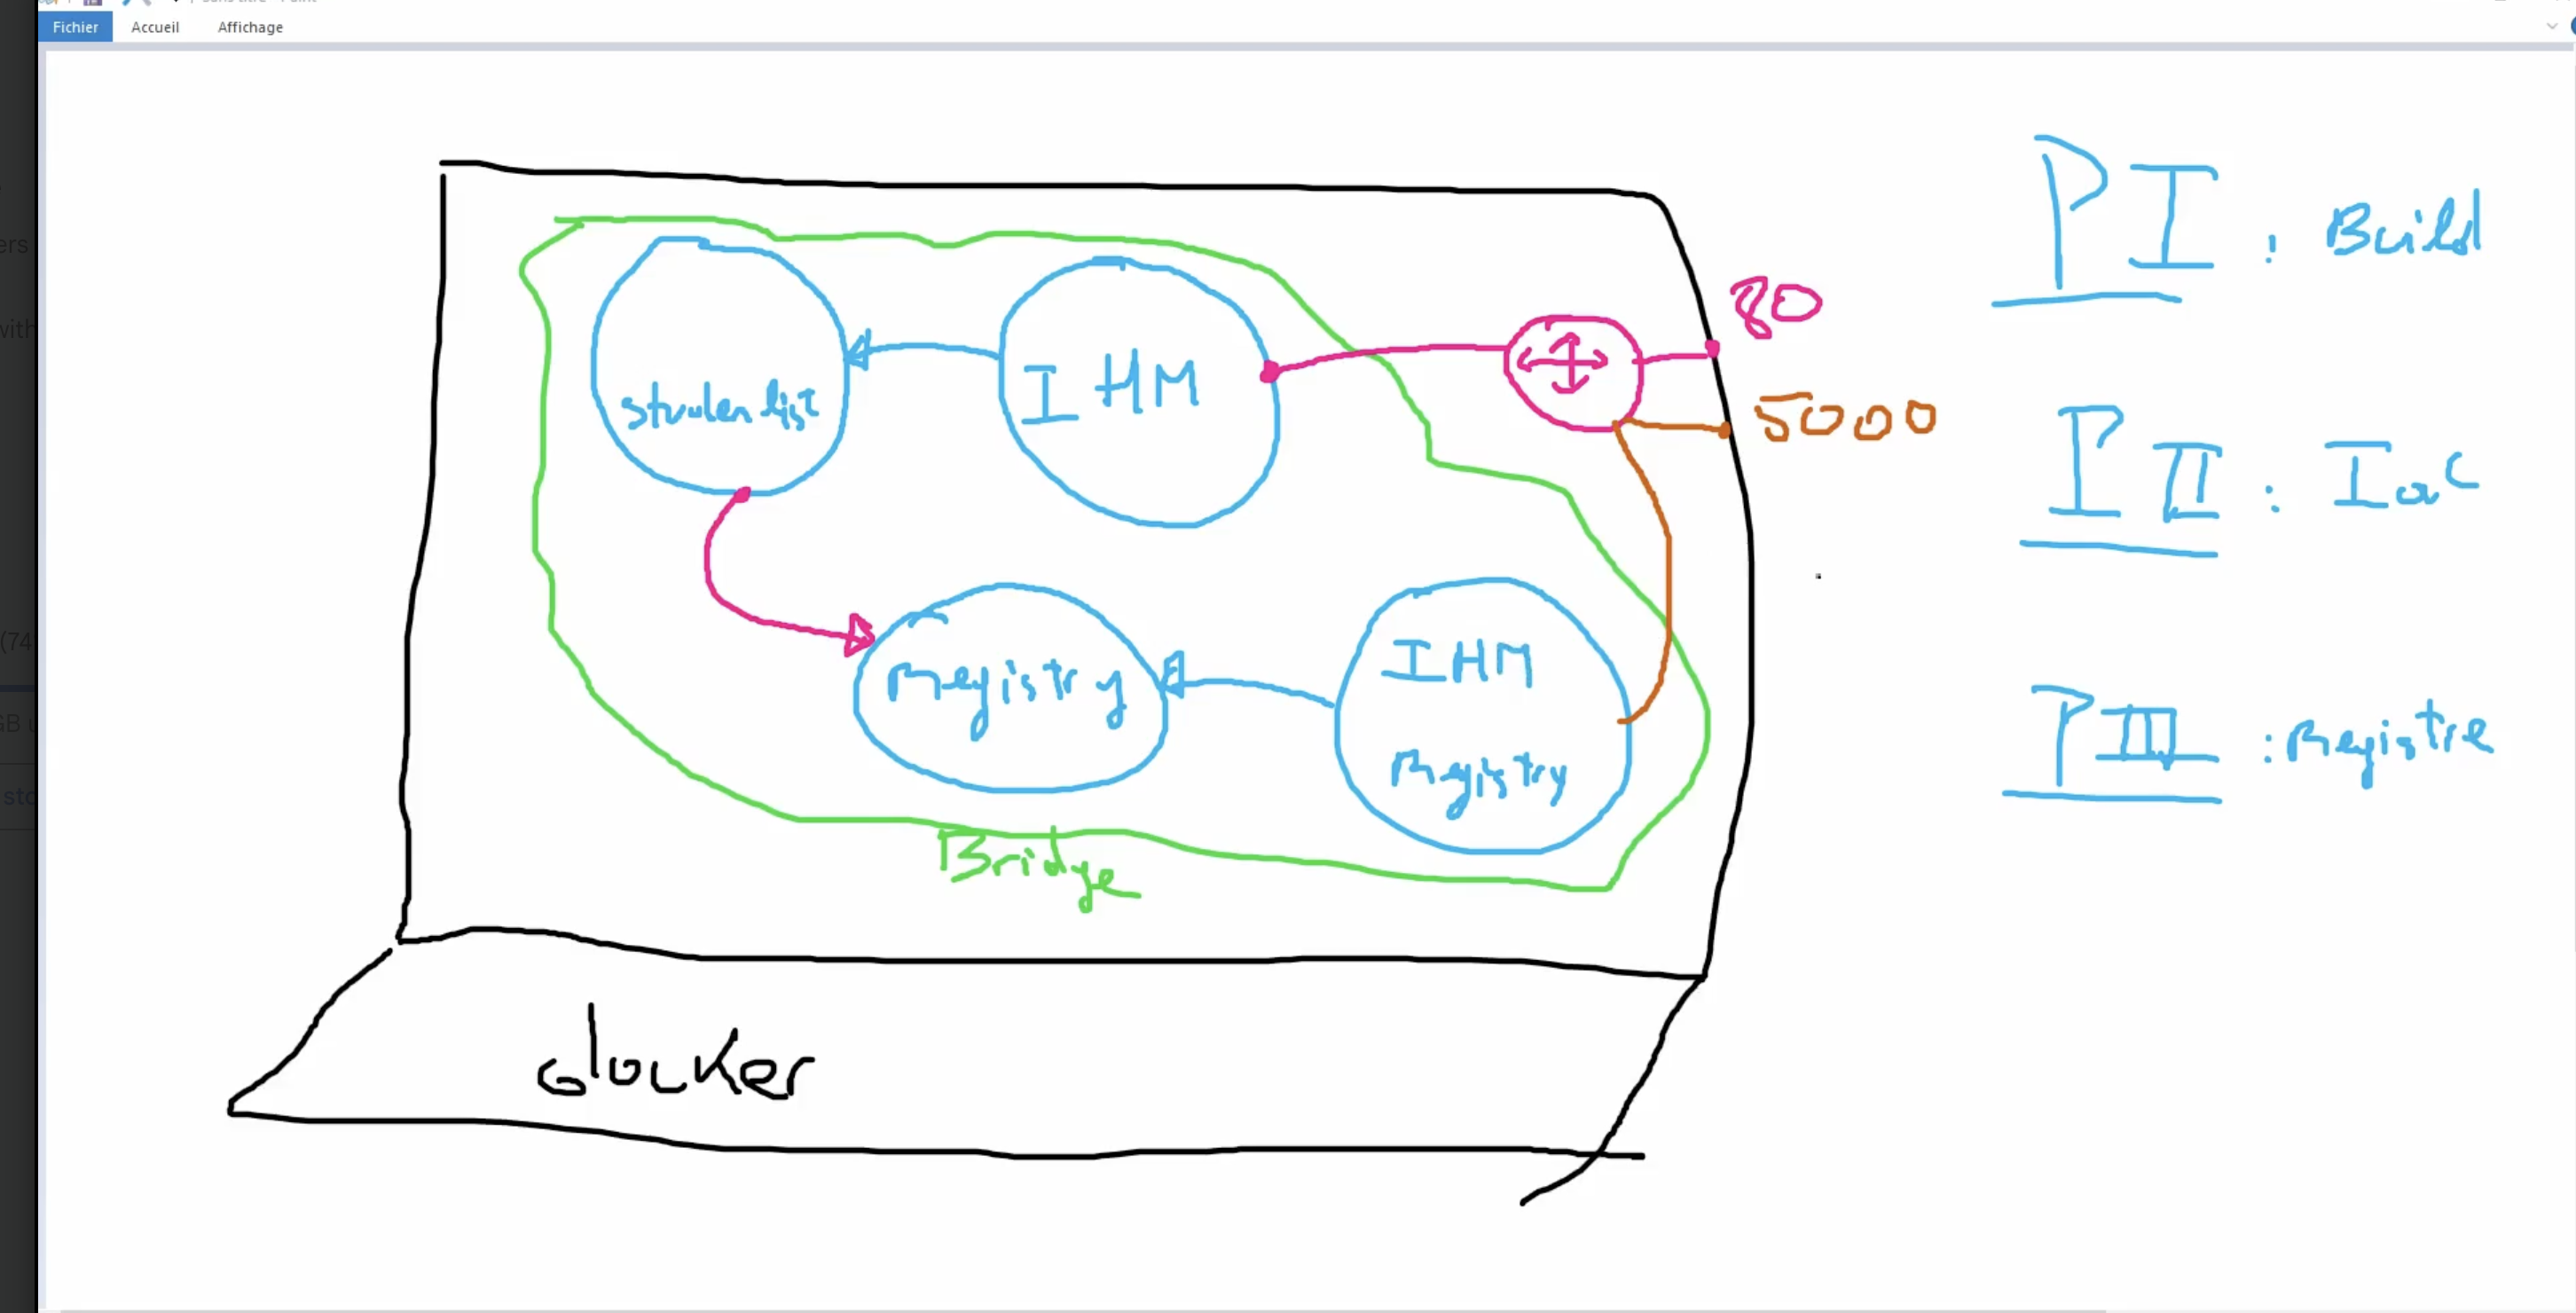 Fichier Accueil Affichage
80
5000
IHM
IHM
Registry
Registry
Bridge
docker
PI : Build
PII : IaC
PIII : Registre